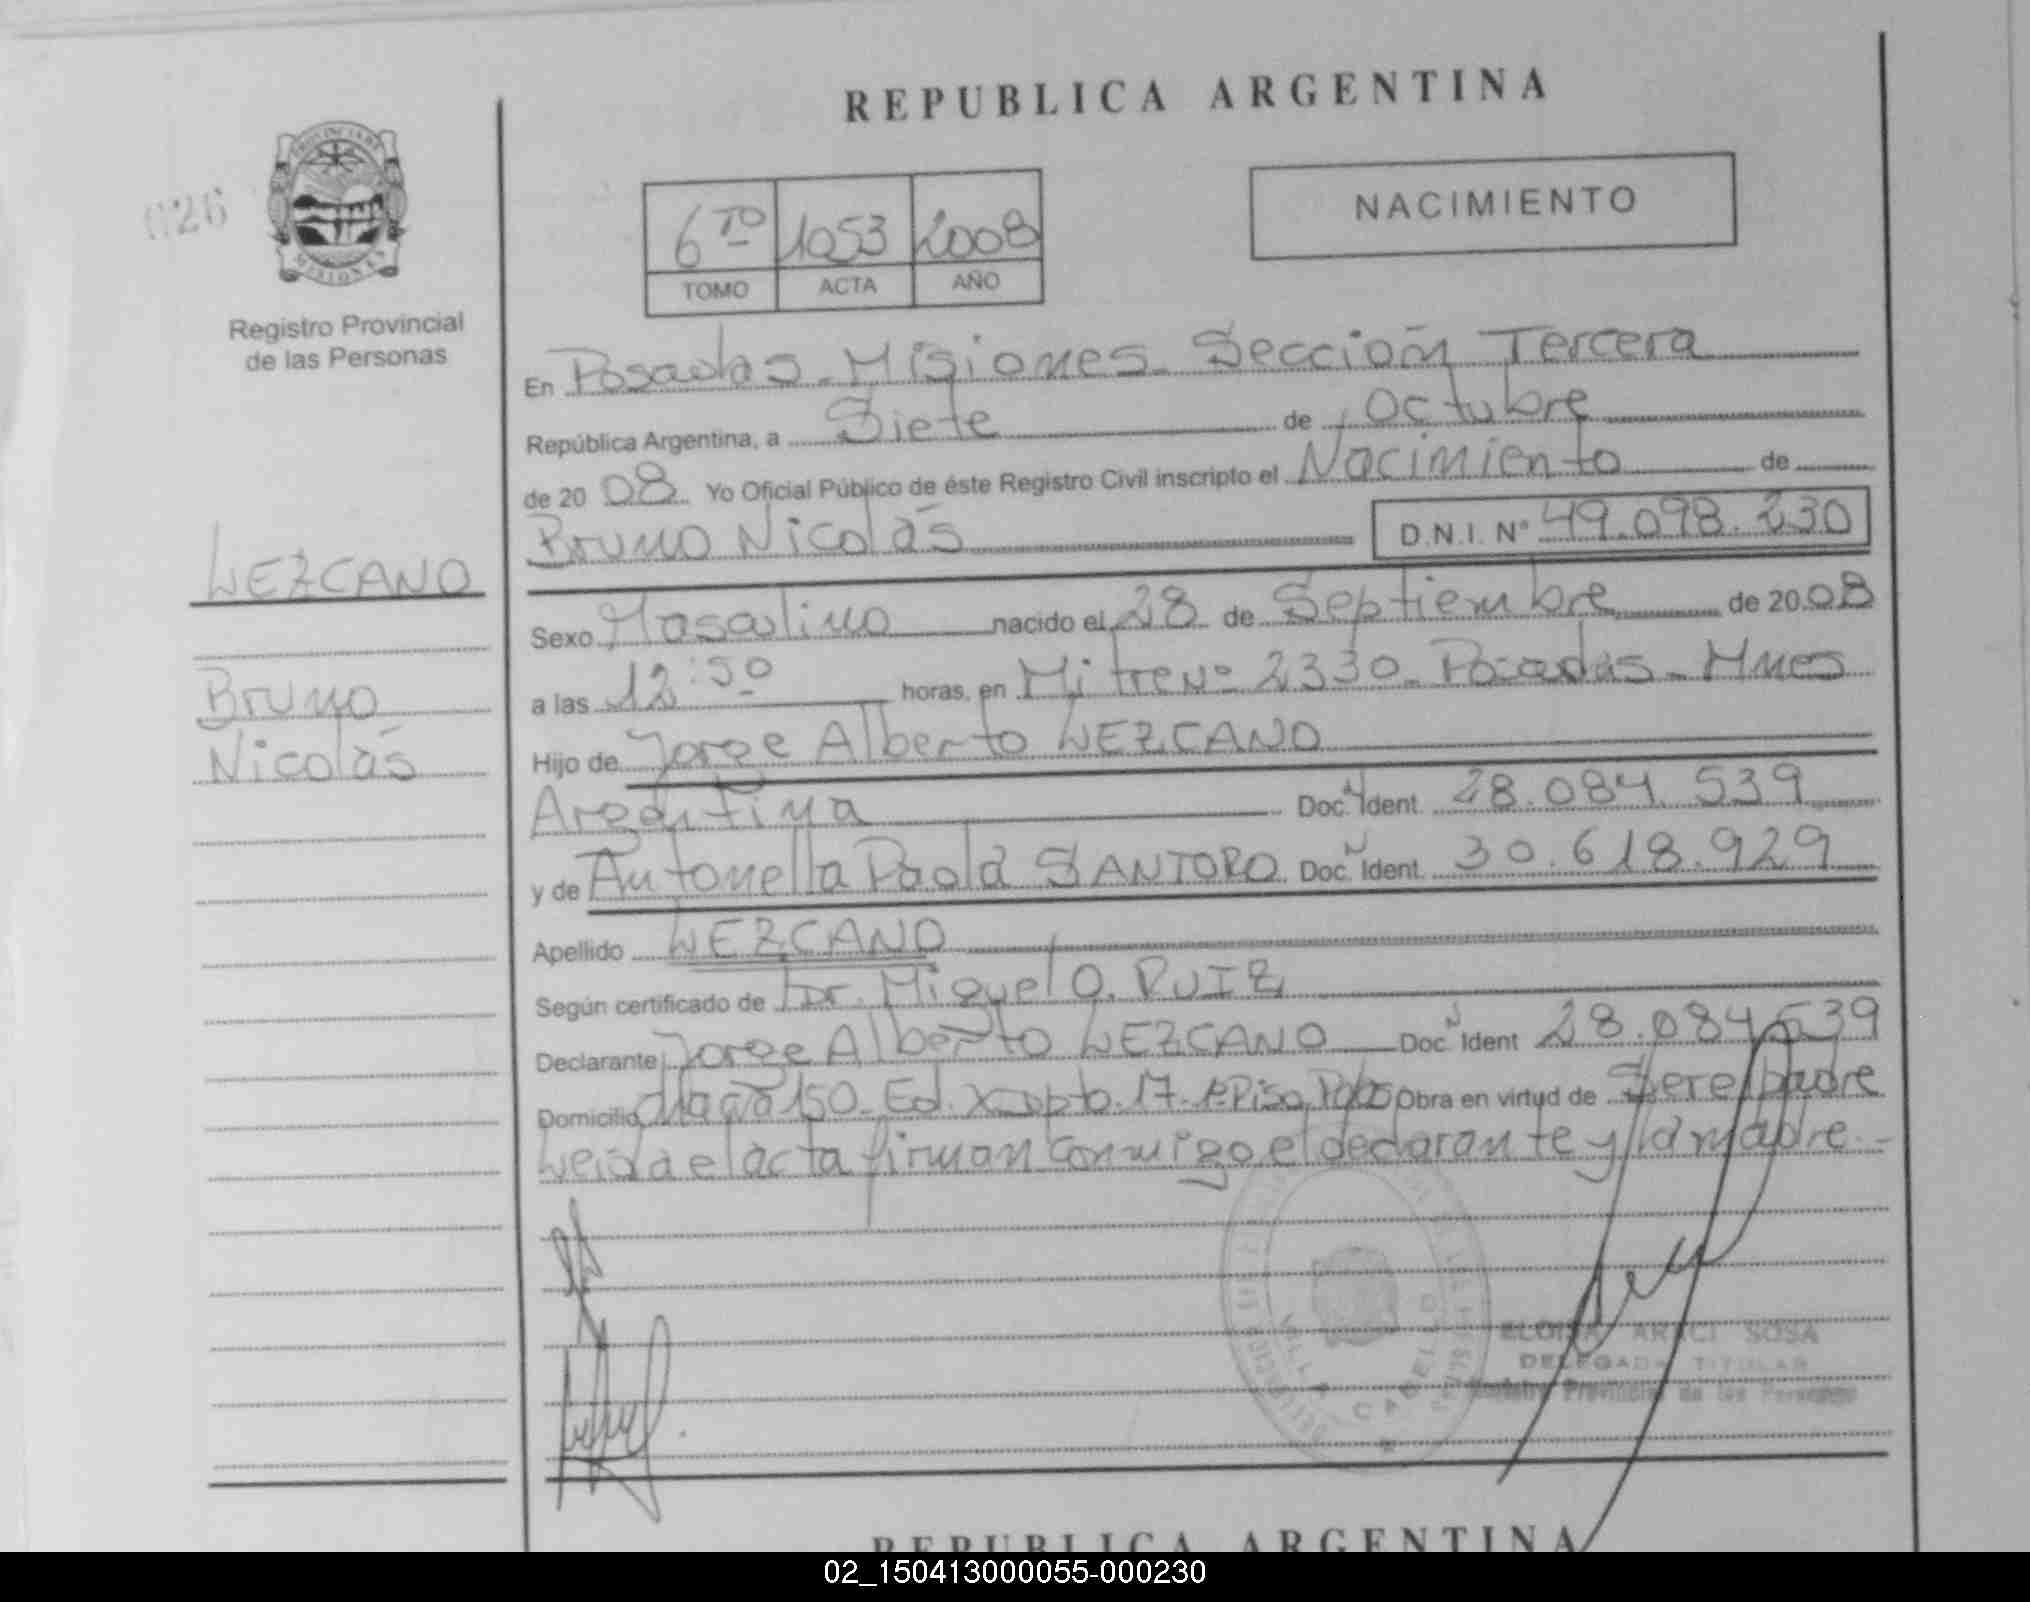 REPUBLICA ARGENTINA
026
PROVINCIA DE
MISIONES
Registro Provincial
de las Personas
6TO 1053 2008
TOMO ACTA AÑO
NACIMIENTO
En Posadas - Misiones - Sección Tercera
República Argentina, a Siete de Octubre
de 20 08 Yo Oficial Público de éste Registro Civil inscripto el Nacimiento de
Bruno Nicolás D.N.I. Nº 49.098.230
LEZCANO
Bruno
Nicolás
Sexo Masculino nacido el 28 de Septiembre de 20 08
a las 12:50 horas, en Mitre Nº 2330 - Posadas - Mnes
Hijo de Jorge Alberto LEZCANO
Argentina Doc. Ident. 28.084.539
y de Antonella Paola SANTORO Doc. Ident. 30.618.929
Apellido LEZCANO
Según certificado de Dr. Miguel O. RUIZ
Declarante Jorge Alberto LEZCANO Doc. Ident 28.084.539
Domicilio 150 - Ed. X Dpto. 17 - Piso Pdas Obra en virtud de Ser el padre
Leída el acta firman conmigo el declarante y la madre. -
ELOISA ARACI SOSA
DELEGADA TITULAR
Registro Provincial de las Personas
REPUBLICA ARGENTINA
02_150413000055-000230